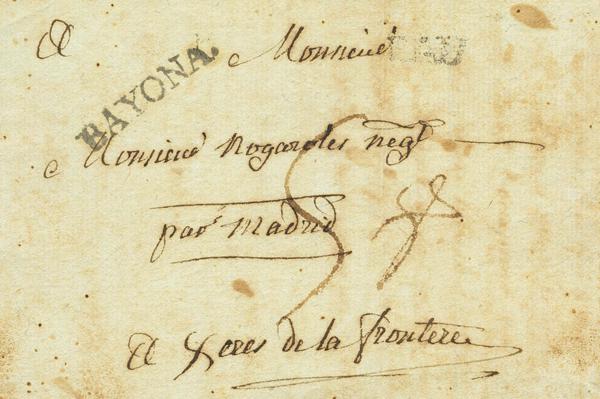 A Monsieur
BAYONA.
Monsieur Nogaroles negt
par Madrid
A Xeres de la frontere